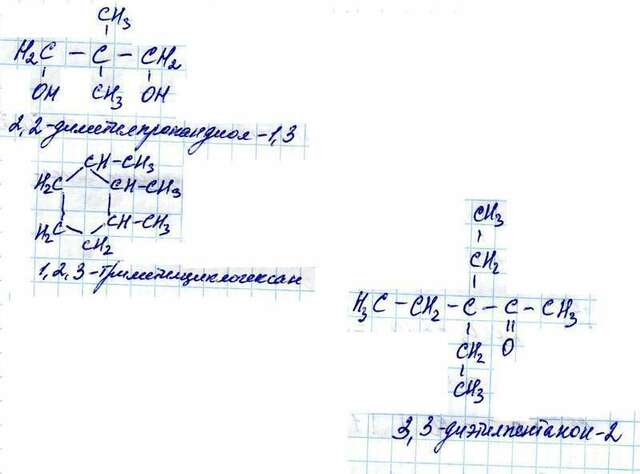 CH₃
H₂C - C - CH₂
OH CH₃ OH
2,2-диметилпропандиол-1,3
CH-CH₃
H₂C CH-CH₃
H₂C CH-CH₃
CH₂
1,2,3-триметилциклогексан
CH₃
CH₂
H₃C - CH₂ - C - C - CH₃
CH₂ O
CH₃
3,3-диэтилпентанон-2